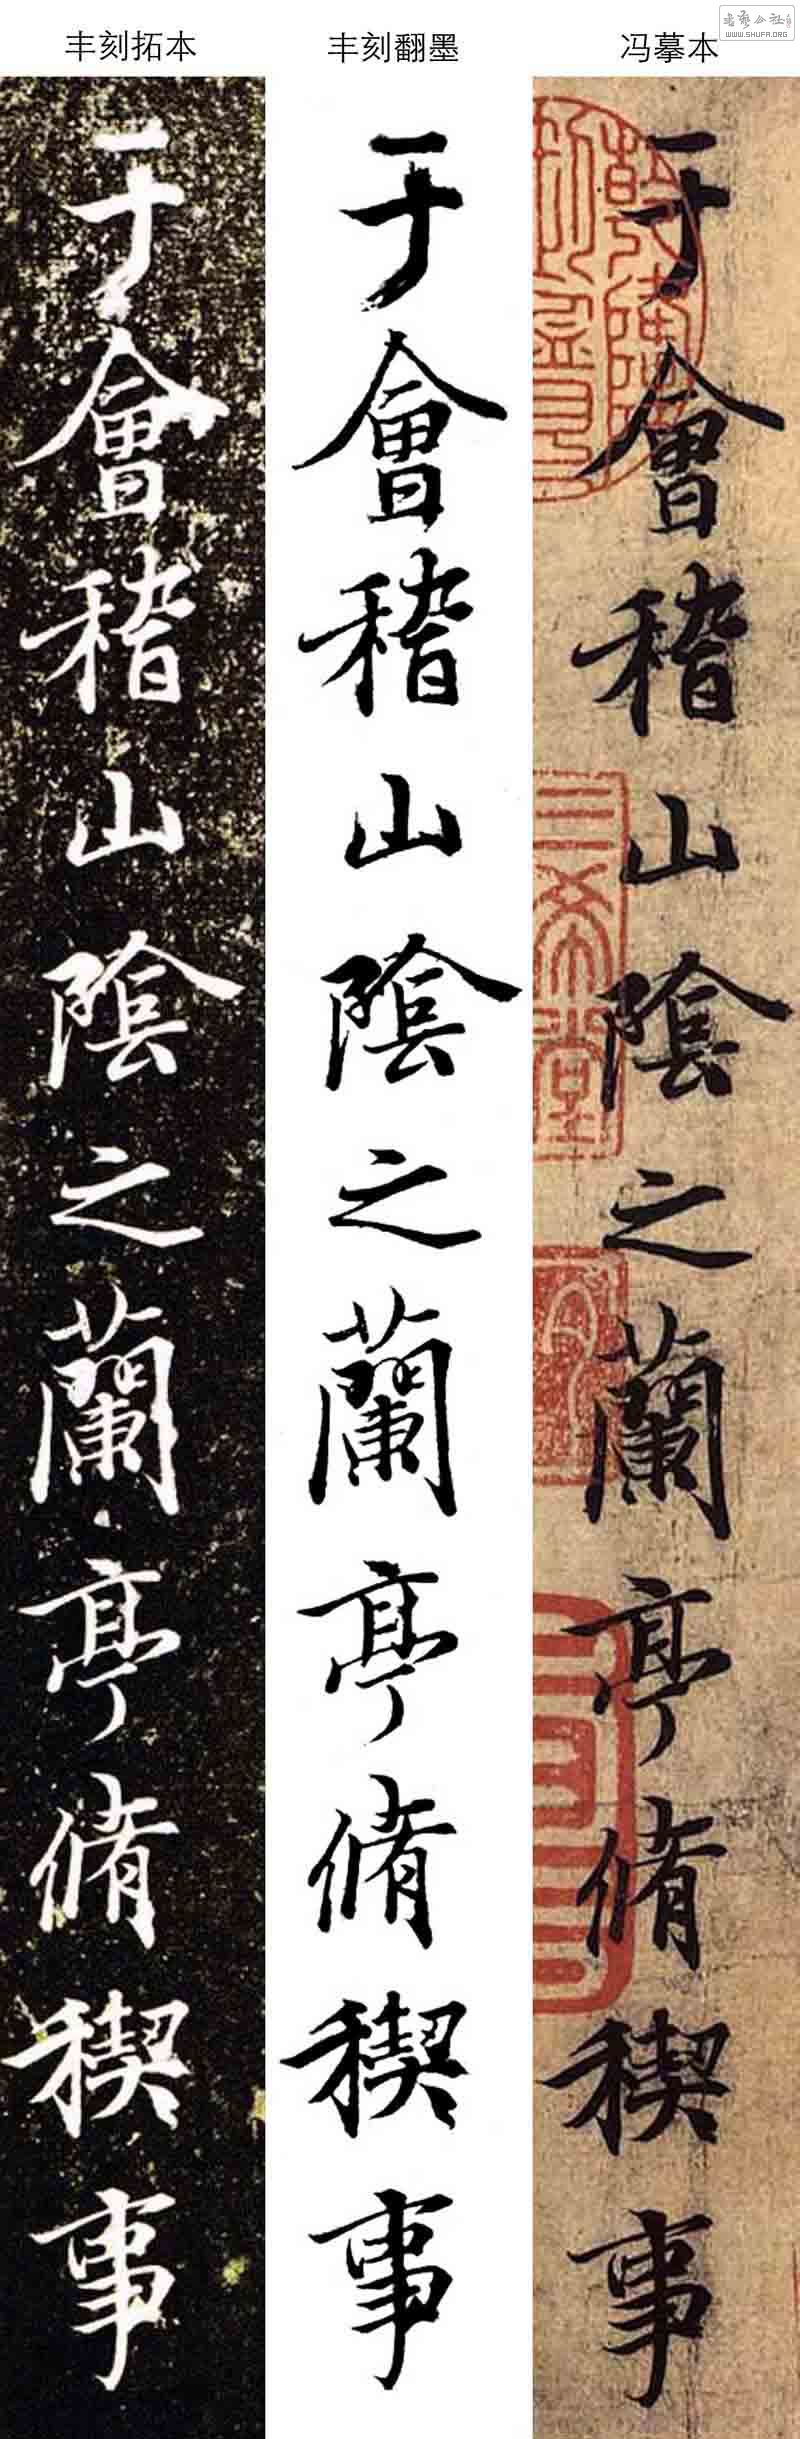 書藝公社
WWW.SHUFA.ORG
丰刻拓本
丰刻翻墨
冯摹本
于會稽山陰之蘭亭脩稧事
于會稽山陰之蘭亭脩稧事
于會稽山陰之蘭亭脩稧事
三希堂